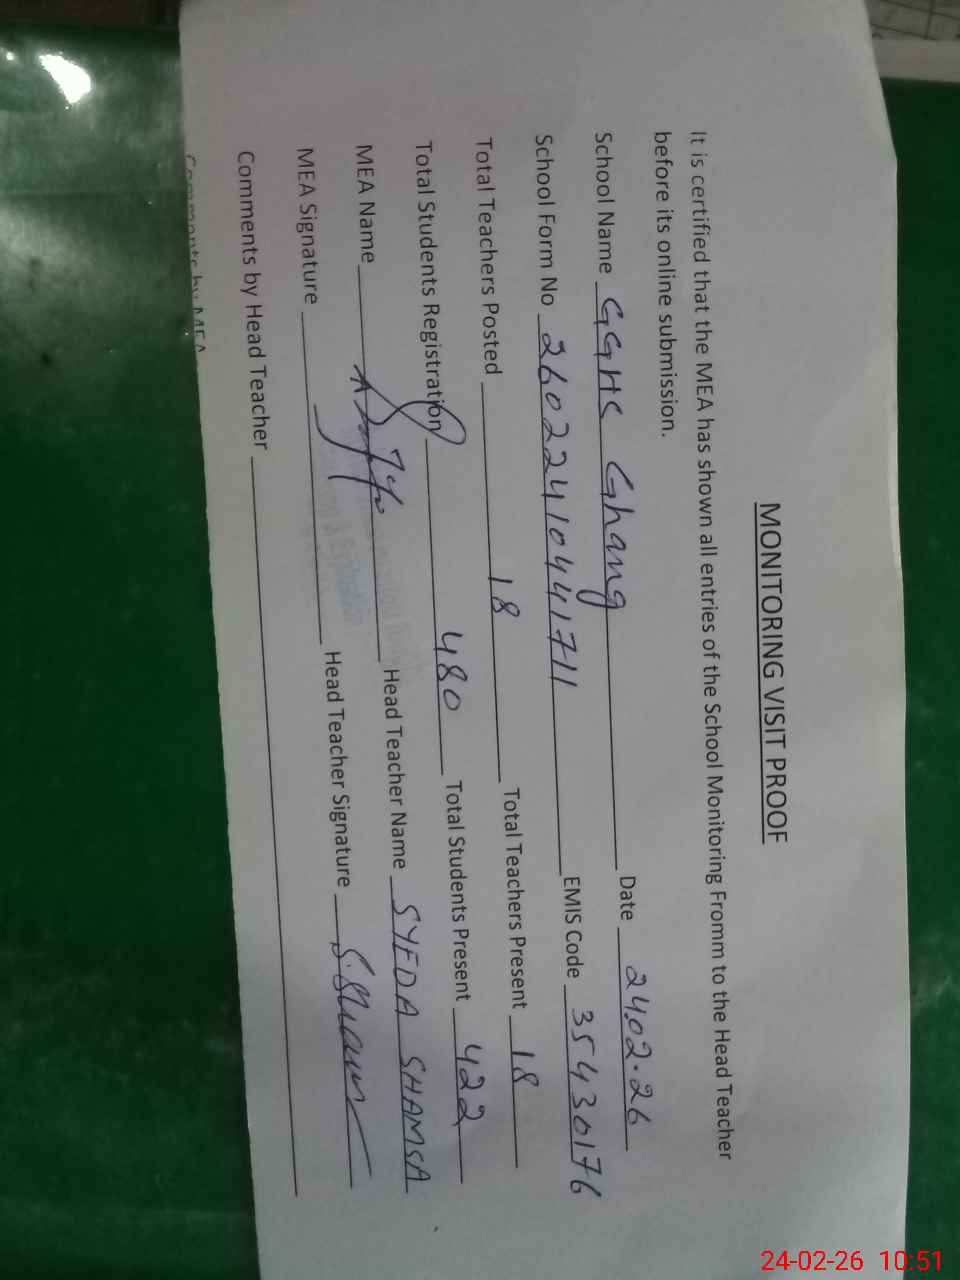 MONITORING VISIT PROOF
It is certified that the MEA has shown all entries of the School Monitoring Fromm to the Head Teacher
before its online submission.
School Name GGHS Ghang Date 24.02.26
School Form No 26022410441711 EMIS Code 35430176
Total Teachers Posted 18 Total Teachers Present 18
Total Students Registration 480 Total Students Present 422
MEA Name Head Teacher Name SYEDA SHAMSA
MEA Signature Head Teacher Signature
Comments by Head Teacher
Comments by MEA
24-02-26 10:51